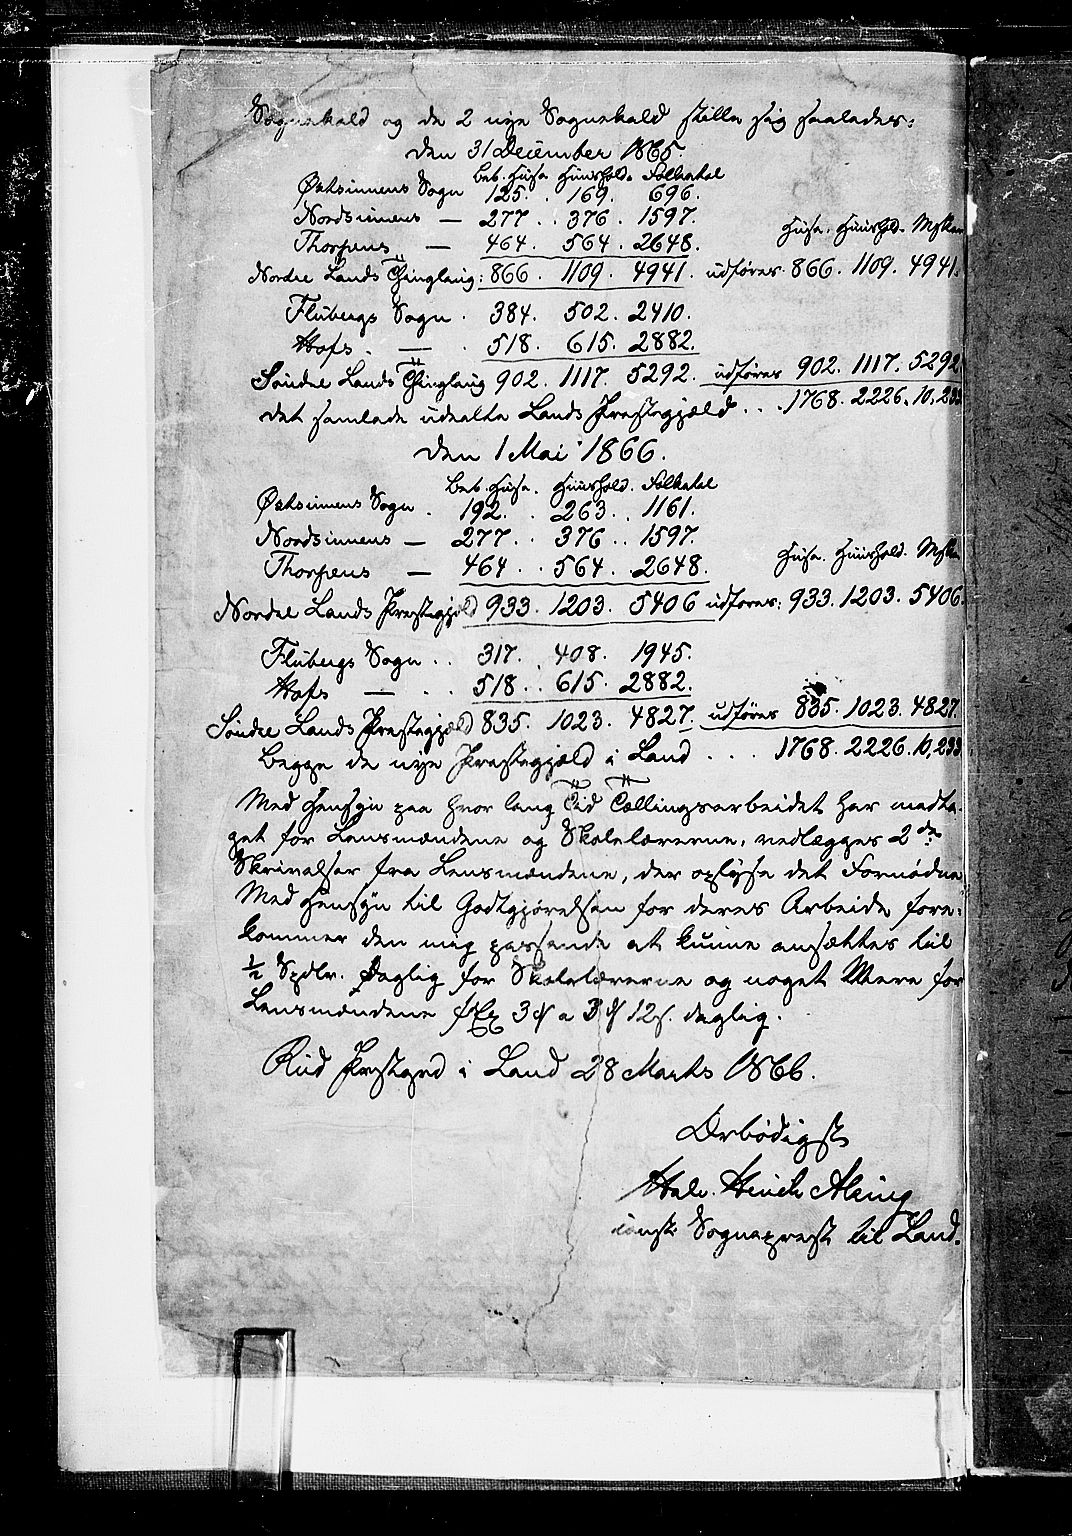 Sognekald og de 2 nye Sognekald stille sig saaledes:
den 31 December 1865.
Beb. Huse Huushold. Folketal
Østsinnens Sogn 125. . 169. 696.
Nordsinnens — 277 . . 376 . 1597.
Thorpens — 464. 564. 2648.
Huse. Huushold. Msker
Nordre Lands Thinglaug: 866. 1109. 4941. udføres 866. 1109. 4941.
Flubergs Sogn . 384. 502. 2410.
Hofs . — . 518. 615. 2882.
Søndre Lands Thinglaug 902. 1117. 5292. udføres 902. 1117. 5292
det samlede udeelte Lands Præstegjæld . . . 1768. 2226. 10,233
den 1 Mai 1866.
Beb. Huse. Huushold. Folketal
Østsinnens Sogn . 192. . 263. . 1161.
Nordsinnens — 277. . 376 . . 1597.
Thorpens — 464 . . 564. . 2648.
Huse. Huushold. Msker
Nordre Lands Præstegjeld 933. 1203. 5406 udføres: 933. 1203. 5406.
Flubergs Sogn . . 317. . 408. 1945.
Hofs — . . 518. . 615. 2882.
Søndre Lands Præstegjæld 835. 1023. 4827. udføres 835. 1023. 4827.
Begge de nye Præstegjæld i Land . . . 1768. 2226. 10,233
Med Hensyn paa hvor lang Tid Tællingsarbeidet har medta-
get for Lensmændene og Skolelærerne, vedlægges 2de
Skrivelser fra Lensmændene, der oplyse det Fornødne
Med Hensyn til Godtgjørelsen for deres Arbeide fore-
kommer den mig passende at kunne ansættes til
½ Spdlr. Daglig for Skolelærerne og noget Mere for
Lensmændene f Ex 3 ₰ a 3 ₰ 12 s. daglig.
Rud Prestgrd i Land 28 Marts 1866.
Ærbødigst
Halv. Hinch
const. Sogneprest til Land.